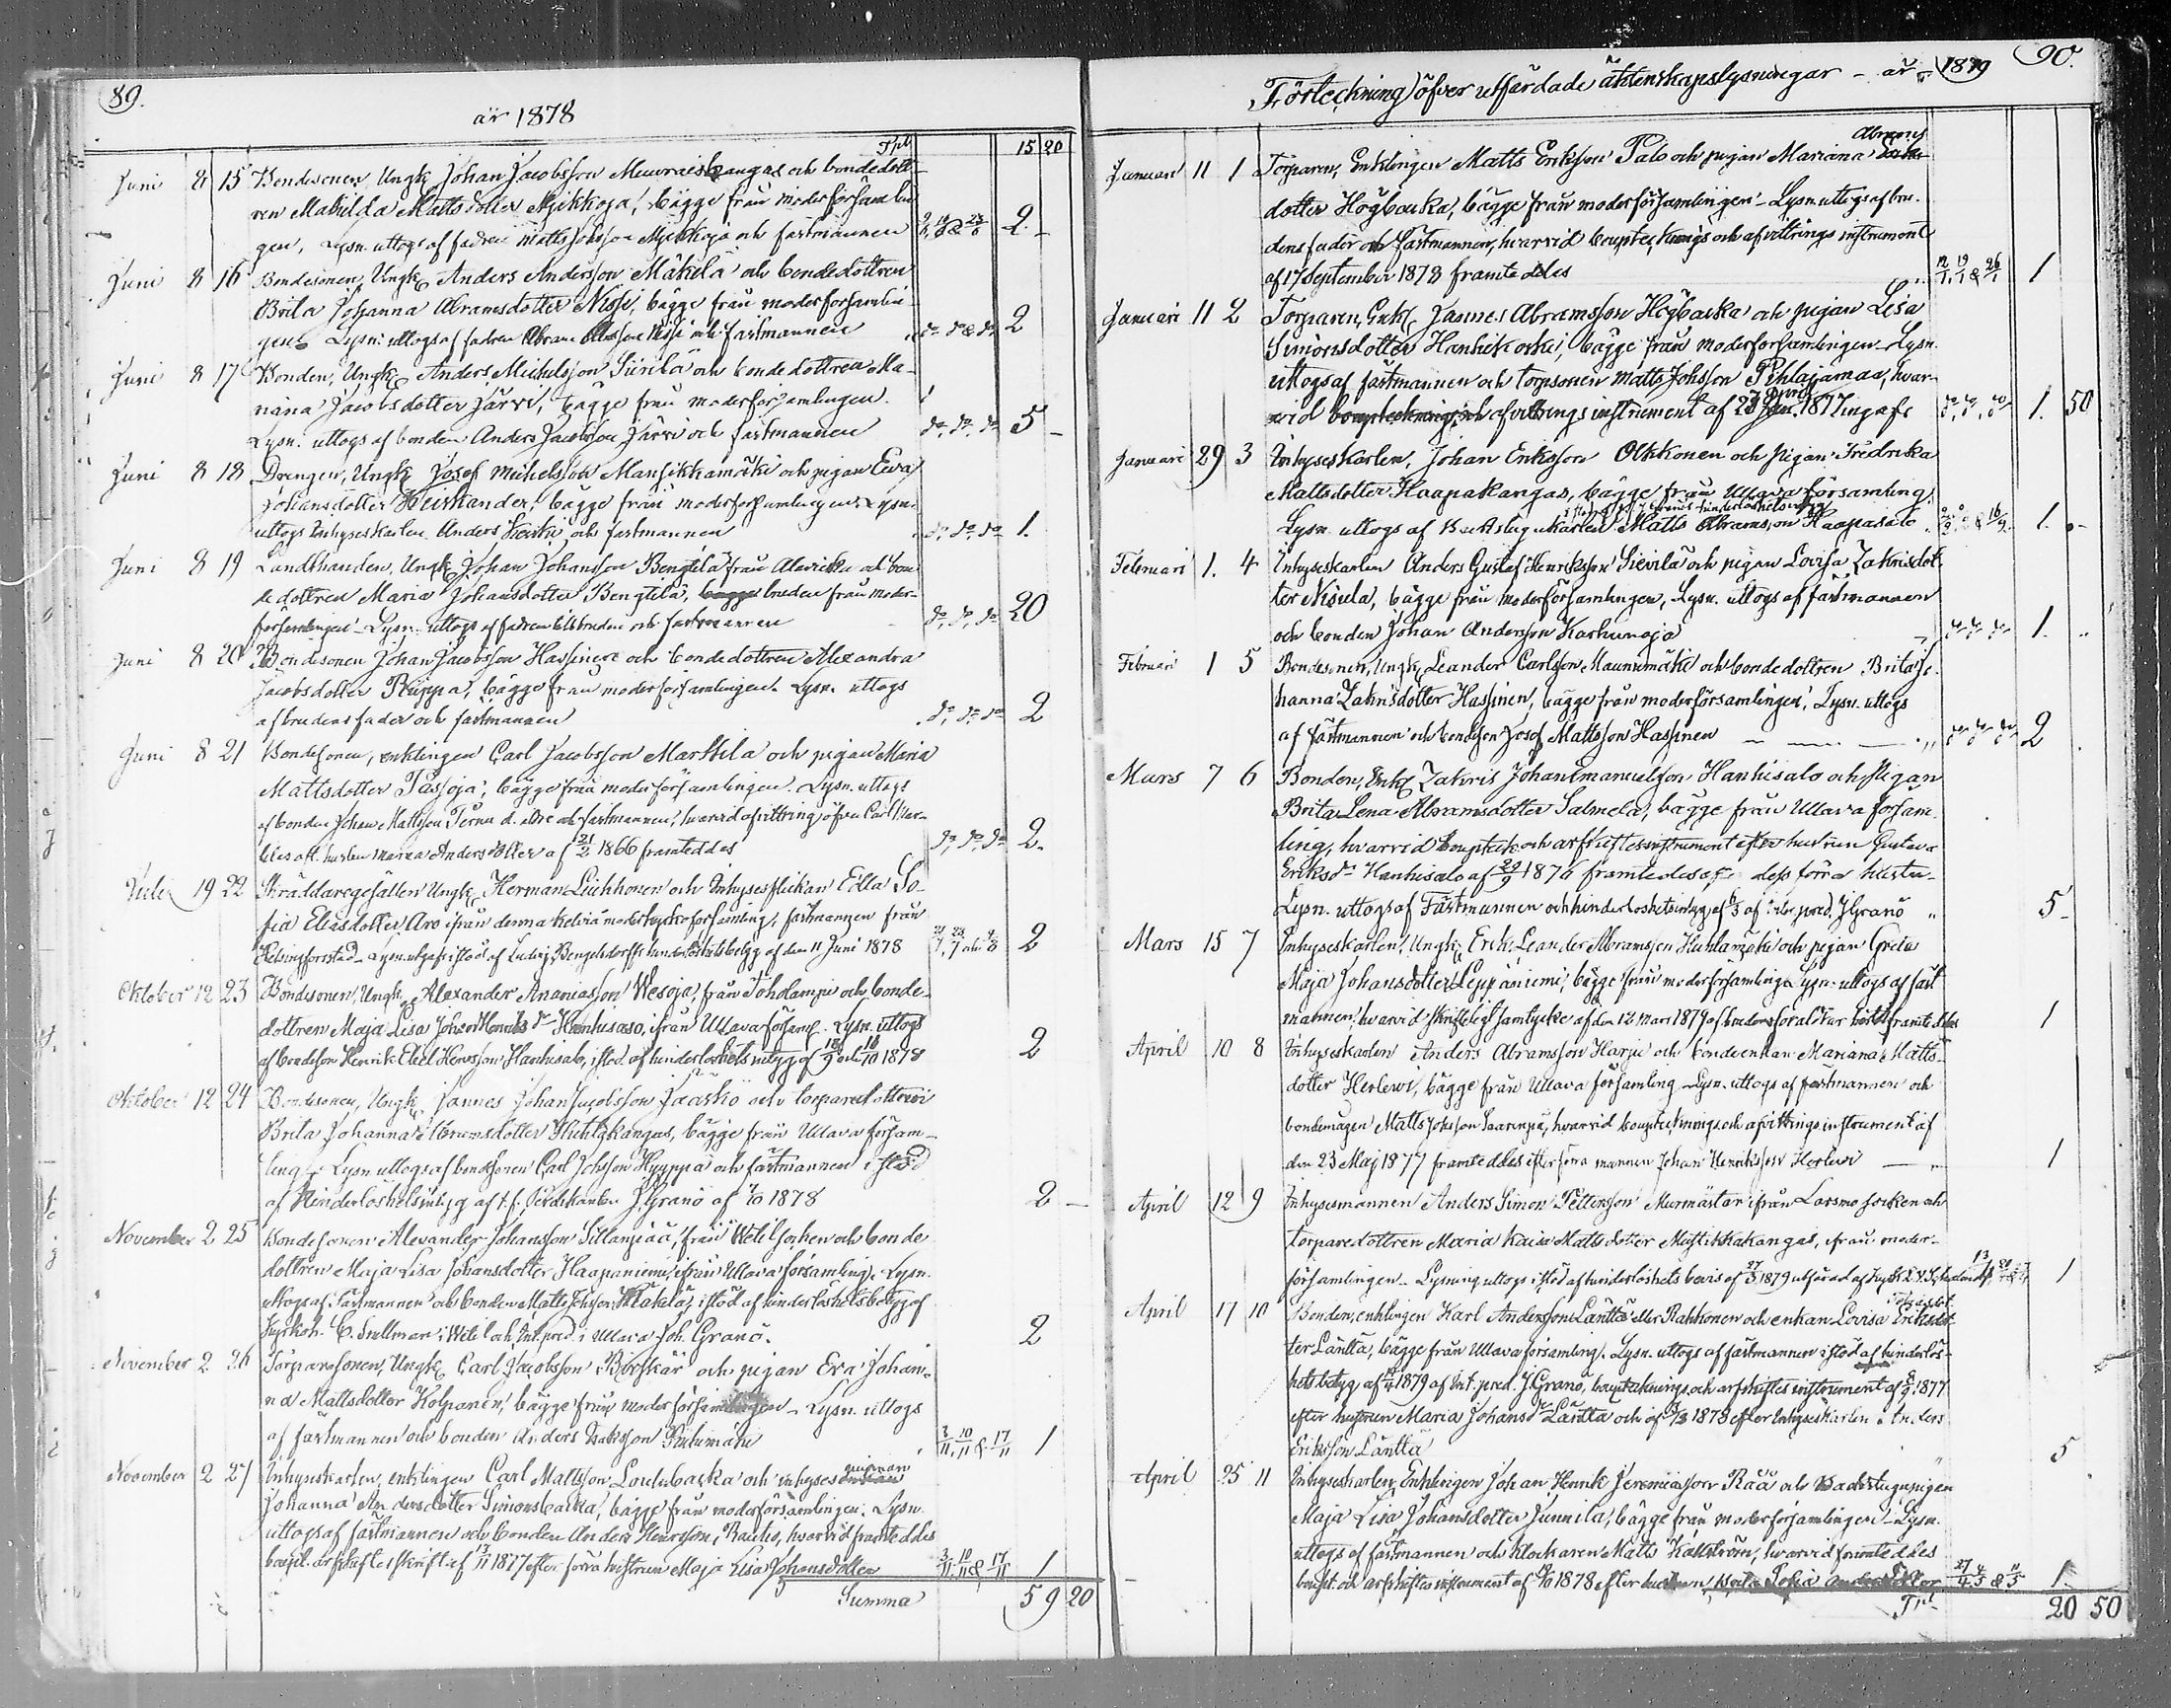 89.
år 1878
Tpl 15 20
Juni 8 15 Bondesonen, Ungk. Johan Jacobsson och bondedott-
ren Mathilda Mattsdotter Myikkoja, bägge från moderförsamlin-
gen, Lysn. uttogs af fadren Matts Johsson Myikkoja och fästmannen 2. -
Juni 8 16 Bondesonen, Ungk. Anders Andersson Mäkelä och bondedottren
Brita Johanna Abramsdotter Nissi, bägge från moderförsamlin-
gen. Lysn. uttogs af fadren Abram Nissi och fästmannen do do & do 2
Juni 8 17 Bonden, Ungk. Anders Michelsson Siirilä och bondedottren Ma-
riana Jacobsdotter Järvi, bägge från moderförsamlingen.
Lysn. uttogs af bonden Anders Jacobsson Järvi och fästmannen do, do, do 5 -
Juni 8 18 Drengen, Ungk. Josef Michelsson Mansikkamäki och pigan Eva
Johansdotter bägge från moderförsamlingen. Lysn.
uttogs Inhyseskarlen Anders och fästmannen do, do, do 1.
Juni 8 19 Landthanden, Ungk. Johan Johansson Bengtilä från Alaveteli och bon-
dedottren Maria Johansdotter Bengtilä, bägge bruden från moder-
församlingen - Lysn. uttogs af fadren till bruden och fästmannen do, do, do 20
Juni 8 20 Bondesonen Johan Jacobsson Hassinen och bondedottren Alexandra
Jacobsdotter Riippa, bägge från moderförsamlingen. Lysn. uttogs
af brudens fader och fästmannen do, do, do 2
Juni 8 21 Bondesonen, enklingen Carl Jacobsson Marttila och pigan Maria
Mattsdotter Passoja, bägge från moderförsamlingen. Lysn. uttogs
af bonden Johan Mattsson Ternu d. äldre och fästmannen, hvarvid afvittring öfver Carl Mar-
tilas afl. hustru Maria Andersdotter af 21/2 1866 framteddes do, do, do 2.
Juli 19 22 Skräddaregesällen Ungk. Herman Liukkonen och Inhysesflickan Edla So-
fia Eliasdotter Aro ifrån denna Kelviå moderkyrkoförsamling, fästmannen från
Helsingfors stad - Lysn. utgafs i stöd af Ludvig Bengelsdorffs hinderlöshetsbetyg af den 11 Juni 1878 2
Oktober 12 23 Bondesonen, Ungk. Alexander Ananiasson Wesoja, från Toholampi och bonde-
dottren Maja Lisa Hanhisalo, ifrån Ullava församl. Lysn. uttogs
af bondeson Henrik Eliel Henrsson Hanhisalo, i stöd af hinderlöshets intyg af 18/9 och 18/10 1878 2
Oktober 12 24 Bondesonen, Ungk. Jannes Johan Jacobsson Jääskö och torparedottren
Brita Johanna Abramsdotter Huhtakangas, bägge från Ullava försam-
ling - Lysn. uttogs af bondsonen Carl Johsson Hyyppä och fästmannen i stöd
af Hinderlöshetsintyg af t.f. J. Granö af 1878 2 -
November 2 25 Bondesonen Alexander Johansson Sillanpää, från Wetil socken och bonde
dottren Maja Lisa Johansdotter Haapaniemi, ifrån Ullava församling. Lysn.
uttogs af fästmannen och bonden Matts Johsson Mäkelä, i stöd af hinderlöshetsbetyg af
Kyrkoh. C. Snellman i Wetil och Int. pred. i Ullava Joh. Granö. 2
November 2 26 Torparesonen, Ungk. Carl Jacobsson Björkbär och pigan Eva Johan-
na Mattsdotter Holpanen, bägge från moderförsamlingen - Lysn. uttogs
af fästmannen och bonden Anders Isaksson 3/11, 10/11 & 17/11 1
November 2 27 Inhyseskarlen, enklingen Carl Mattsson Loutubacka och inhyses
Johanna Andersdotter Simonsbacka, bägge från moderförsamlingen. Lysn.
uttogs af fästmannen och bonden Anders Henrsson Rauhio, hvarvid framteddes
boupt. arfskiftesskrift af 13/11 1877 efter förra hustrun Maja Lisa Johansdotter 3/11, 10/11 & 17/11 1
Summa 59 20
90.
Förteckning öfver utfärdade äktenskapslysningar - år 1879
Januari 11 1 Torparen, Enklingen Matts Eriksson Palo och pigan Mariana Abrams
dotter Högbacka, bägge från moderförsamlingen - Lysn. uttogs af bru-
dens fader och fästmannen, hvarvid bouptecknings och afvittrings instrument
af 17 September 1878 framteddes 12/1, 19/1 & 26/1 1
Januari 11 2 Torparen, Enkl. Jannes Abramsson Högbacka och pigan Lisa
Simonsdotter Hanhikoski, bägge från moderförsamlingen - Lysn.
uttogs af fästmannen och torpsonen Matts Johsson Pihlajamaa, hvar-
vid bouptecknings och afvittrings instrument af 1877 ingafs do, do, do 1. 50
Januari 29 3 Inhyseskarlen, Johan Eriksson Olkkonen och pigan Fredrika
Mattsdotter Haapakangas, bägge från Ullava församling.
Lysn. uttogs af Backstugukarlen Matts Abramsson Haapasalo 1. -
Februari 1. 4 Inhyseskarlen Anders Gustaf Henriksson Sievilä och pigan Lovisa Zakrisdot-
ter Nisula, bägge från moderförsamlingen, Lysn. uttogs af fästmannen
och bonden Johan Andersson Karhunoja do do do 1.
Februari 1 5 Bondesonen, Ungk. Leander Carlsson Maunumäki och bondedottren Brita Jo-
hanna Zakrisdotter Hassinen, bägge från moderförsamlingen, Lysn. uttogs
af fästmannen och bondeson Josef Mattsson Hassinen do do do 2
Mars 7 6 Bonden, Enkl. Zakris Johan Emanuelsson Hanhisalo och Pigan
Brita Lena Abramsdotter Salmela, bägge från Ullava försam-
ling, hvarvid boupteck. och arfskiftesinstrument efter hustrun Gustava
Eriksdr Hanhisalo af 29/9 1876 framteddes dess förra hustru-
Lysn. uttogs af Fästmannen och hinderlöshetsintyg af 6/3 af pred. J Granö 5 -
Mars 15 7 Inhyseskarlen, Ungk. Erik Leander Abramsson Huhtamäki och pigan Greta
Maja Johansdotter Leppäniemi, bägge från moderförsamlingen Lysn. uttogs af fäst
mannen, hvarvid skriftligt samtycke af den 12 Mars 1879 af brudens föräldrar framteddes 1
April 10 8 Inhyseskarlen Anders Abramsson Harju och bondeenkan Mariana Matts-
dotter Herlewi, bägge från Ullava församling - Lysn. uttogs af fästmannen och
bondemågen Matts Johsson Saarenpä, hvarvid bouptecknings och afvittrings instrument af
den 23 Maj 1877 framteddes efter förra mannen Johan Henriksson Herlewi 1
April 12 9 Inhysesmannen Anders Simon Pettersson Murmästar ifrån Larsmo socken och
torparedottren Maria Kaisa Mattsdotter Mustikkakangas, ifrån moder-
församlingen - Lysning uttogs i stöd af hinderlöshets bevis af 27/3 1879 utfärdad af 1
April 17 10 Bonden, enklingen Karl Andersson Läntta eller Rahkonen och enkan Lovisa Eriksdot-
ter Läntta, bägge från Ullava församling. Lysn. uttogs af fästmannen i stöd af hinderlös-
hets betyg af 1879 af Int. pred. J. Granö, bouptecknings och arfskiftes instrument af 1877
efter hustrun Maria Johansdr Läntta och af 1878 efter Inhyseskarlen Anders
Eriksson Läntta 5
April 25 11 Inhyseskarlen, Enklingen Johan Henrik Jeremiasson Rää och Backstugupigan
Maja Lisa Johansdotter Junnila, bägge från moderförsamlingen - Lysn.
uttogs af fästmannen och klockaren Matts Källström, hvarvid framteddes
boupt. och arfskiftesinstrument af 1878 efter hustrun Brita Sofia Andersdotter 27/4, 4/5 & 11/5 1.
Tpl 20 50